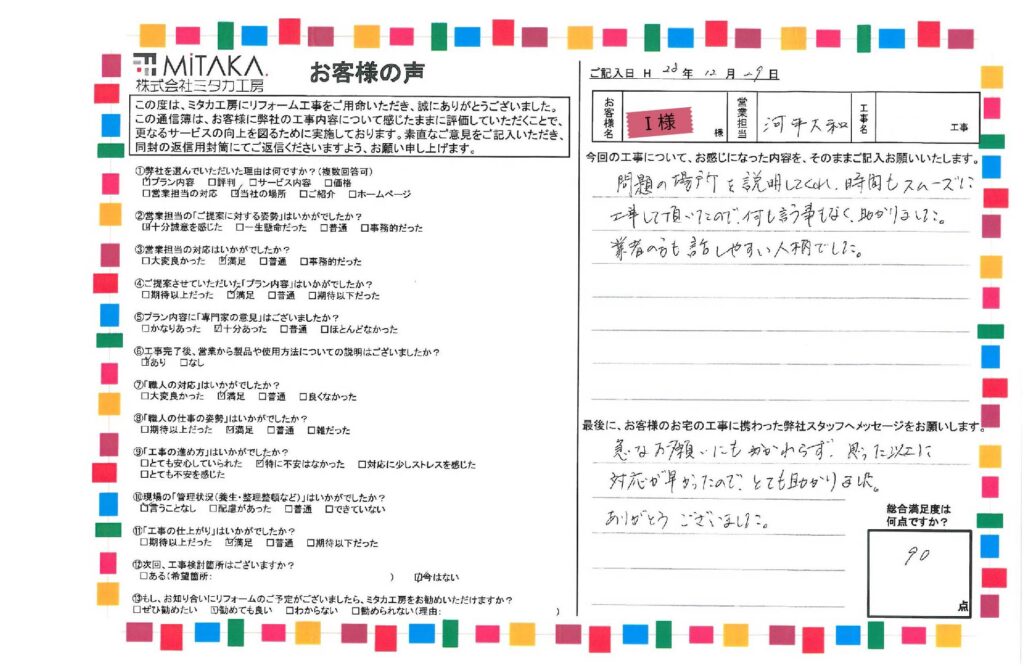 MiTAKA.
株式会社ミタカ工房
お客様の声
この度は、ミタカ工房にリフォーム工事をご用命いただき、誠にありがとうございました。
この通信簿は、お客様に弊社の工事内容について感じたままに評価していただくことで、
更なるサービスの向上を図るために実施しております。素直なご意見をご記入いただき、
同封の返信用封筒にてご返信くださいますよう、お願い申し上げます。
①弊社を選んでいただいた理由は何ですか?(複数回答可)
☑プラン内容 □評判 □サービス内容 □価格
□営業担当の対応 ☑当社の場所 □ご紹介 □ホームページ
②営業担当の「ご提案に対する姿勢」はいかがでしたか?
☑十分誠意を感じた □一生懸命だった □普通 □事務的だった
③営業担当の対応はいかがでしたか?
□大変良かった ☑満足 □普通 □事務的だった
④ご提案させていただいた「プラン内容」はいかがでしたか?
□期待以上だった ☑満足 □普通 □期待以下だった
⑤プラン内容に「専門家の意見」はございましたか?
□かなりあった ☑十分あった □普通 □ほとんどなかった
⑥工事完了後、営業から製品や使用方法についての説明はございましたか?
☑あり □なし
⑦「職人の対応」はいかがでしたか?
□大変良かった ☑満足 □普通 □良くなかった
⑧「職人の仕事の姿勢」はいかがでしたか?
□期待以上だった ☑満足 □普通 □雑だった
⑨「工事の進め方」はいかがでしたか?
□とても安心していられた ☑特に不安はなかった □対応に少しストレスを感じた
□とても不安を感じた
⑩現場の「管理状況(養生・整理整頓など)」はいかがでしたか?
☑言うことなし □配慮があった □普通 □できていない
⑪「工事の仕上がり」はいかがでしたか?
□期待以上だった ☑満足 □普通 □期待以下だった
⑫次回、工事検討箇所はございますか?
□ある(希望箇所: ) ☑今はない
⑬もし、お知り合いにリフォームのご予定がございましたら、ミタカ工房をお勧めいただけますか?
□ぜひ勧めたい ☑勧めても良い □わからない □勧められない(理由: )
ご記入日 H 28 年 12 月 29 日
お客様名 I 様 様 営業担当 河平大和 工事名 工事
今回の工事について、お感じになった内容を、そのままご記入お願いいたします。
問題の場所を説明してくれ、時間もスムーズに
工事して頂いたので、何も言う事もなく、助かりました。
業者の方も話しやすい人柄でした。
最後に、お客様のお宅の工事に携わった弊社スタッフへメッセージをお願いします。
急なお願いにもかかわらず、思った以上に
対応が早かったので、とても助かりました。
ありがとうございました。
総合満足度は
何点ですか?
90
点